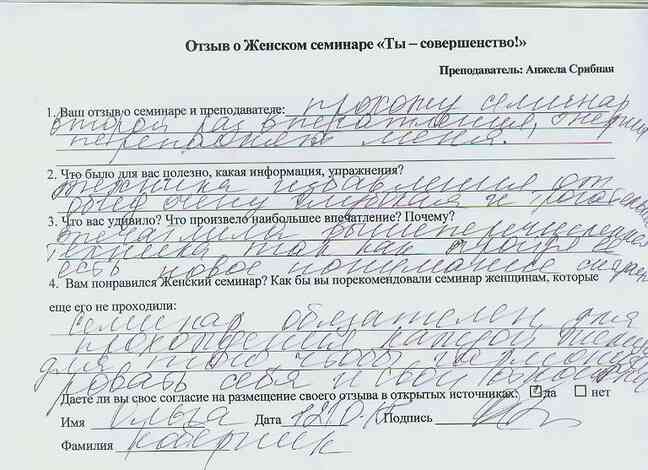 Отзыв о Женском семинаре «Ты – совершенство!»
Преподаватель: Анжела Срибная
1. Ваш отзыв о семинаре и преподавателе: прохожу семинар
второй раз впечатления, энергия
переполняет меня.
2. Что было для вас полезно, какая информация, упражнения?
техника избавления от
обид очень глубокая и
3. Что вас удивило? Что произвело наибольшее впечатление? Почему?
впечатлила вышеперечисленная
техника так как
есть новое понимание
4. Вам понравился Женский семинар? Как бы вы порекомендовали семинар женщинам, которые
еще его не проходили:
Семинар обязателен для
прохождения каждой
для того, чтобы
себя и свои
Даете ли вы свое согласие на размещение своего отзыва в открытых источниках: да нет
Имя Ольга Дата Подпись
Фамилия